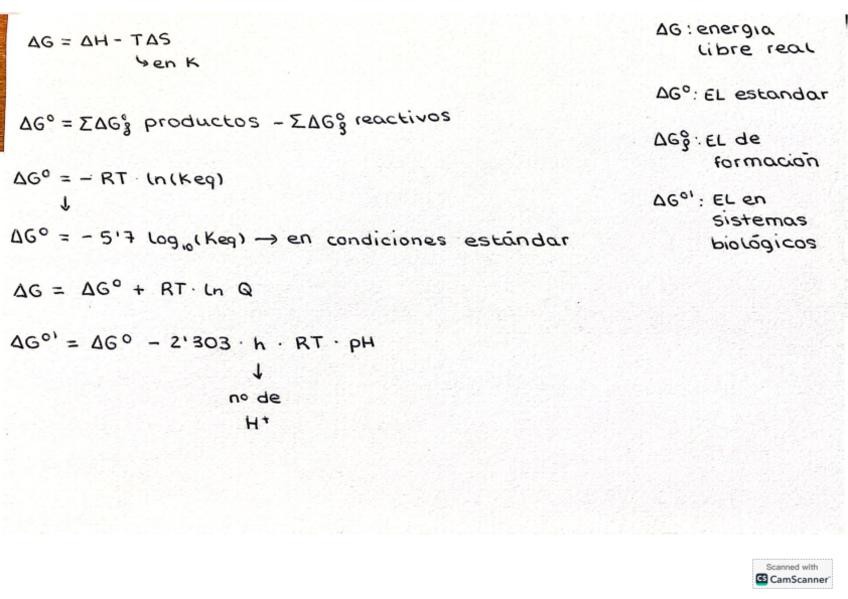 ΔG = ΔH - TΔS
↳ en K
ΔG° = ΣΔG°f productos - ΣΔG°f reactivos
ΔG° = - RT · ln(Keq)
↓
ΔG° = - 5'7 log₁₀(Keq) → en condiciones estándar
ΔG = ΔG° + RT · Ln Q
ΔG°' = ΔG° - 2'303 · h · RT · pH
↓
no de
H⁺
ΔG : energia
libre real
ΔG° : EL estandar
ΔG°f : EL de
formación
ΔG°' : EL en
sistemas
biológicos
Scanned with
CS CamScanner